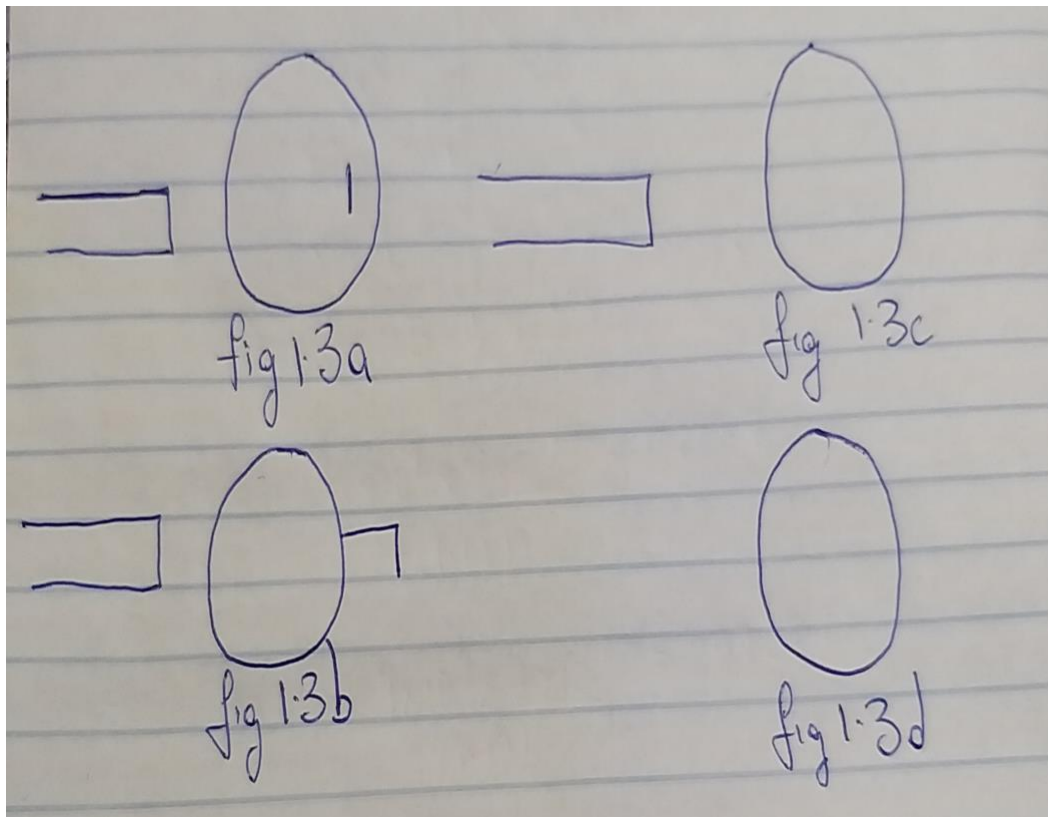 fig 1.3a
fig 1.3c
fig 1.3b
fig 1.3d